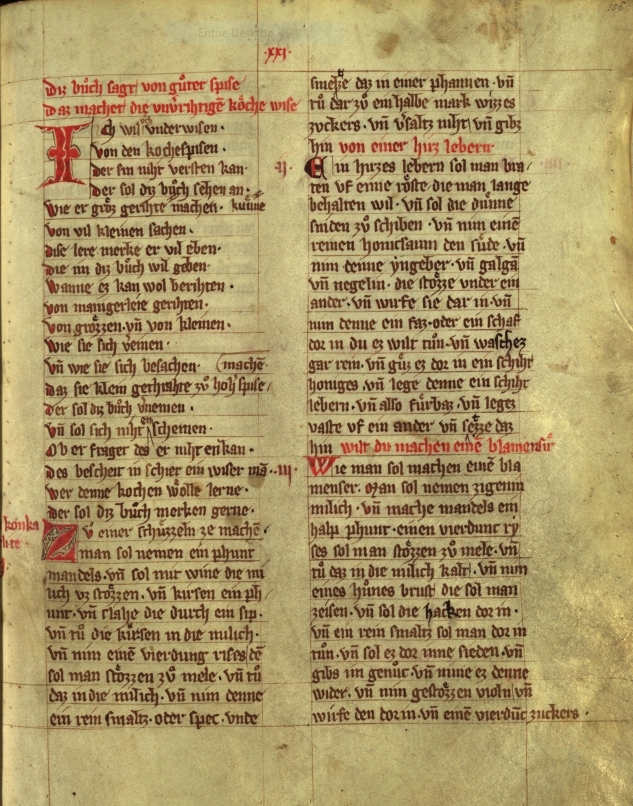 ·xxi·
156
Diz bůch sagt von gůter spise
daz machet die vnv̉rihtigē kőche wise
Ich wil ůch vnderwisen ·
von den kochespisen ·
der sin niht versten kan·
der sol diz bůch sehen an·
wie er groz gerihte machen · kunne
von vil kleinen sachen ·
dise lere merke er vil eben·
die im diz bůch wil geben·
wanne ez kan wol berihten ·
von manigerleie gerihten ·
von grőzzen· vn̄ von kleinen ·
wie sie sich vereinen ·
vn̄ wie sie sich besachen · machē
daz sie klein gerihte zů hoh spise
der sol diz bůch v̉nemen ·
vn̄ sol sich niht enschemen ·
Ob er fraget des er niht enkan·
des bescheit in schier ein wiser mā ·
wer denne kochen wőlle lerne·
der sol diz bůch merken gerne·
konka
vrte
Zv einer schüzzeln ze machē ·
man sol nemen ein phunt
mandels· vn̄ sol mit wine die mi
lich vz stőzzen · vn̄ kirsen ein ph
unt· vn̄ slahe die durch ein sip·
vn̄ tů die kirsen in die milich·
vn̄ nim einē vierdung rises dē
sol man stőzzen zů mele · vn̄ tů
daz in die milich · vn̄ nim denne
ein rein smaltz· oder spec · vnde
smeltze daz in einer phannen · vn̄
tů dar zů ein halbe mark wizzes
zuckers · vn̄ v̉saltz niht· vn̄ gibz
hin von einer hirz lebern
·ij· Ein hirzes lebern sol man bra
ten vf eime rőste· die man lange
behalten wil · vn̄ sol die dunne
sniden zů schiben · vn̄ nim einē
reinen honicsaum den sůde · vn̄
nim denne yngeber· vn̄ galgā
vn̄ negelin · die stőzze vnder ein
ander· vn̄ wirfe sie dar in· vn̄
nim denne ein faz· oder ein schaf
dor in du ez wilt tůn· vn̄ waschez
gar rein · vn̄ gůz ez dor in ein schiht
honiges · vn̄ lege denne ein schiht
lebern· vn̄ also fűrbaz· vn̄ legez
vaste vf ein ander vn̄ setze daz
hin wilt du machen einē blamensir
·iij· Wie man sol machen einē bla
menser · Man sol nemen zigenin
milich · vn̄ mache mandels ein
halp phunt · einen vierdunc ry
ses sol man stőzzen zů mele · vn̄
tů daz in die milich kalt· vn̄ nim
eines hůnes brust die sol man
zeisen · vn̄ sol die hacken dor in ·
vn̄ ein rein smaltz sol man dor in
tůn · vn̄ sol ez dor inne sieden · vn̄
gibs im genůc · vn̄ nime ez denne
wider· vn̄ nim gestőzzen violn vn̄
wirfe den dor in· vn̄ einē vierdūc zuckers ·